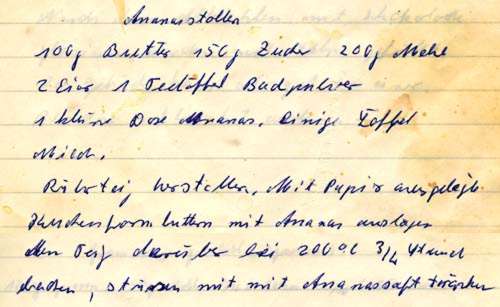 Ananasstollen
100g Butter 150g Zucker 200g Mehl
2 Eier 1 Teelöffel Backpulver
1 kleine Dose Ananas. Einige Löffel
Milch.
Rührteig herstellen. Mit Papir ausgelegte
Kuchenform buttern mit Ananas auslegen
den Teig darüber bei 200°C 3/4 Stund
backen, mit Ananassaft tränken